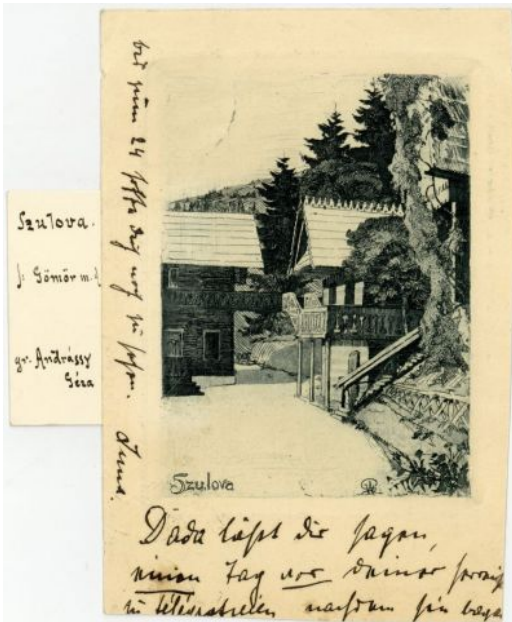 Szulova.
f: Gömör m.
gr. Andrássy
Géza
bis zum 24 hoffe dich noch zu sehen.
Szulova
Dada läßt dir sagen,
einen Tag vor deiner
zu telegraphieren nachdem sie